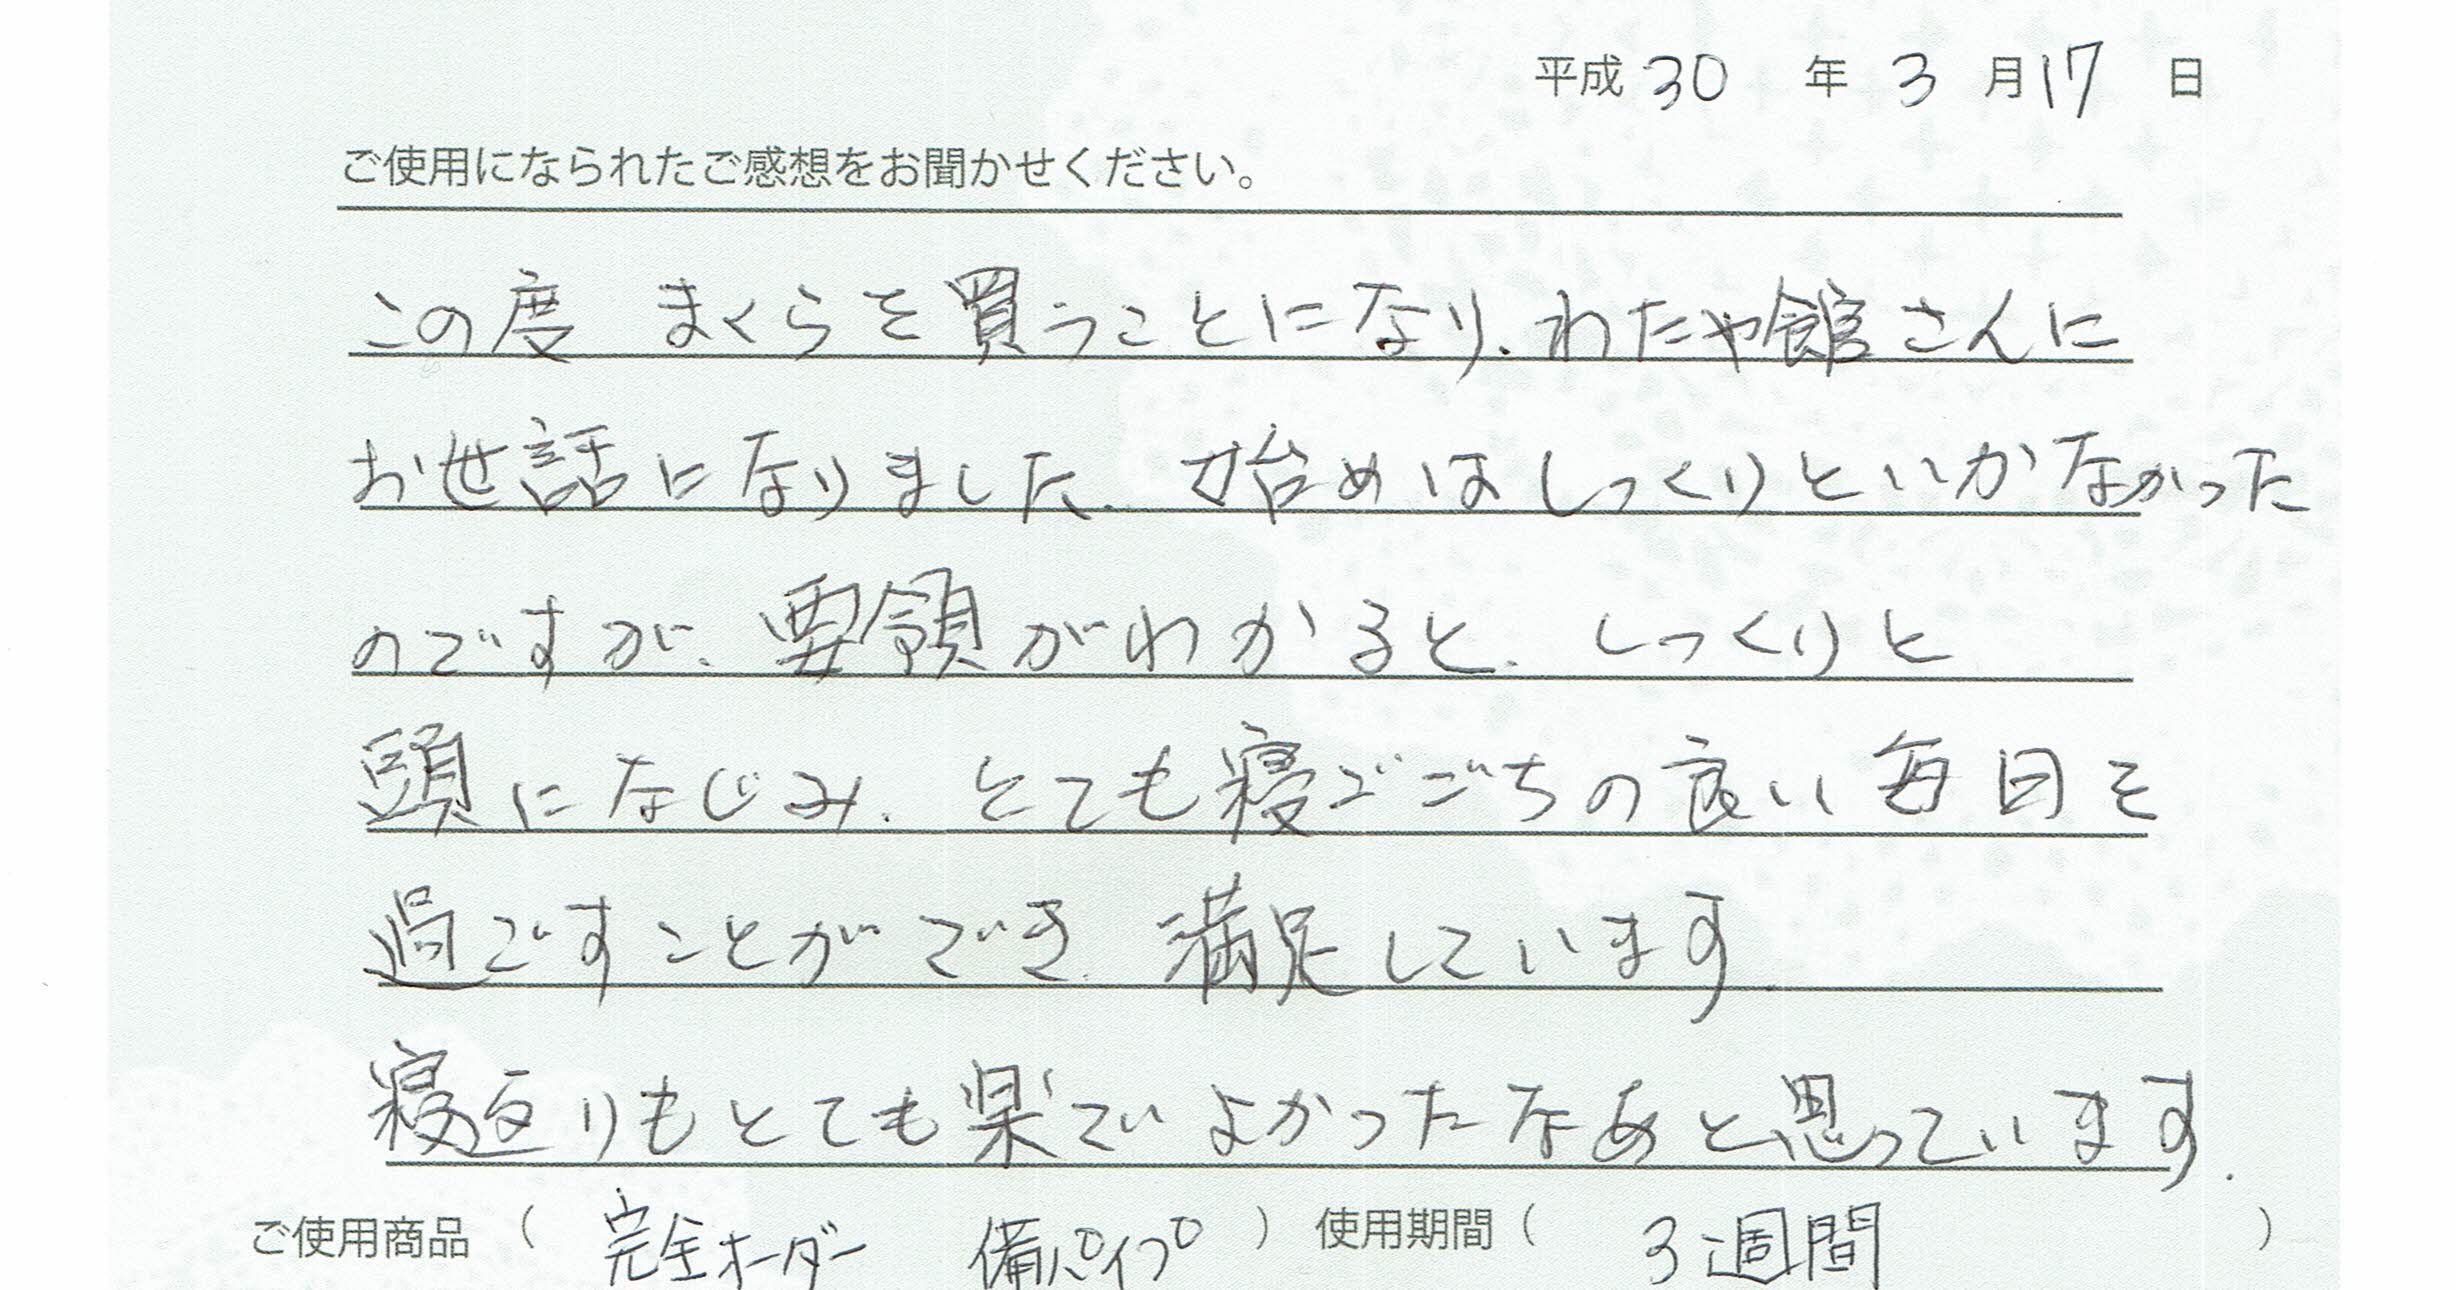 平成 30 年 3 月 17 日
ご使用になられたご感想をお聞かせください。
この度 まくらを買うことになり、わたや館さんに
お世話になりました。始めはしっくりといかなかった
のですが、要領がわかると、しっくりと
頭になじみ、とても寝ごごちの良い毎日を
過ごすことができ、満足しています。
寝返りもとても楽でよかったなあと思っています。
ご使用商品 ( 完全オーダー 備パイプ ) 使用期間 ( 3週間 )